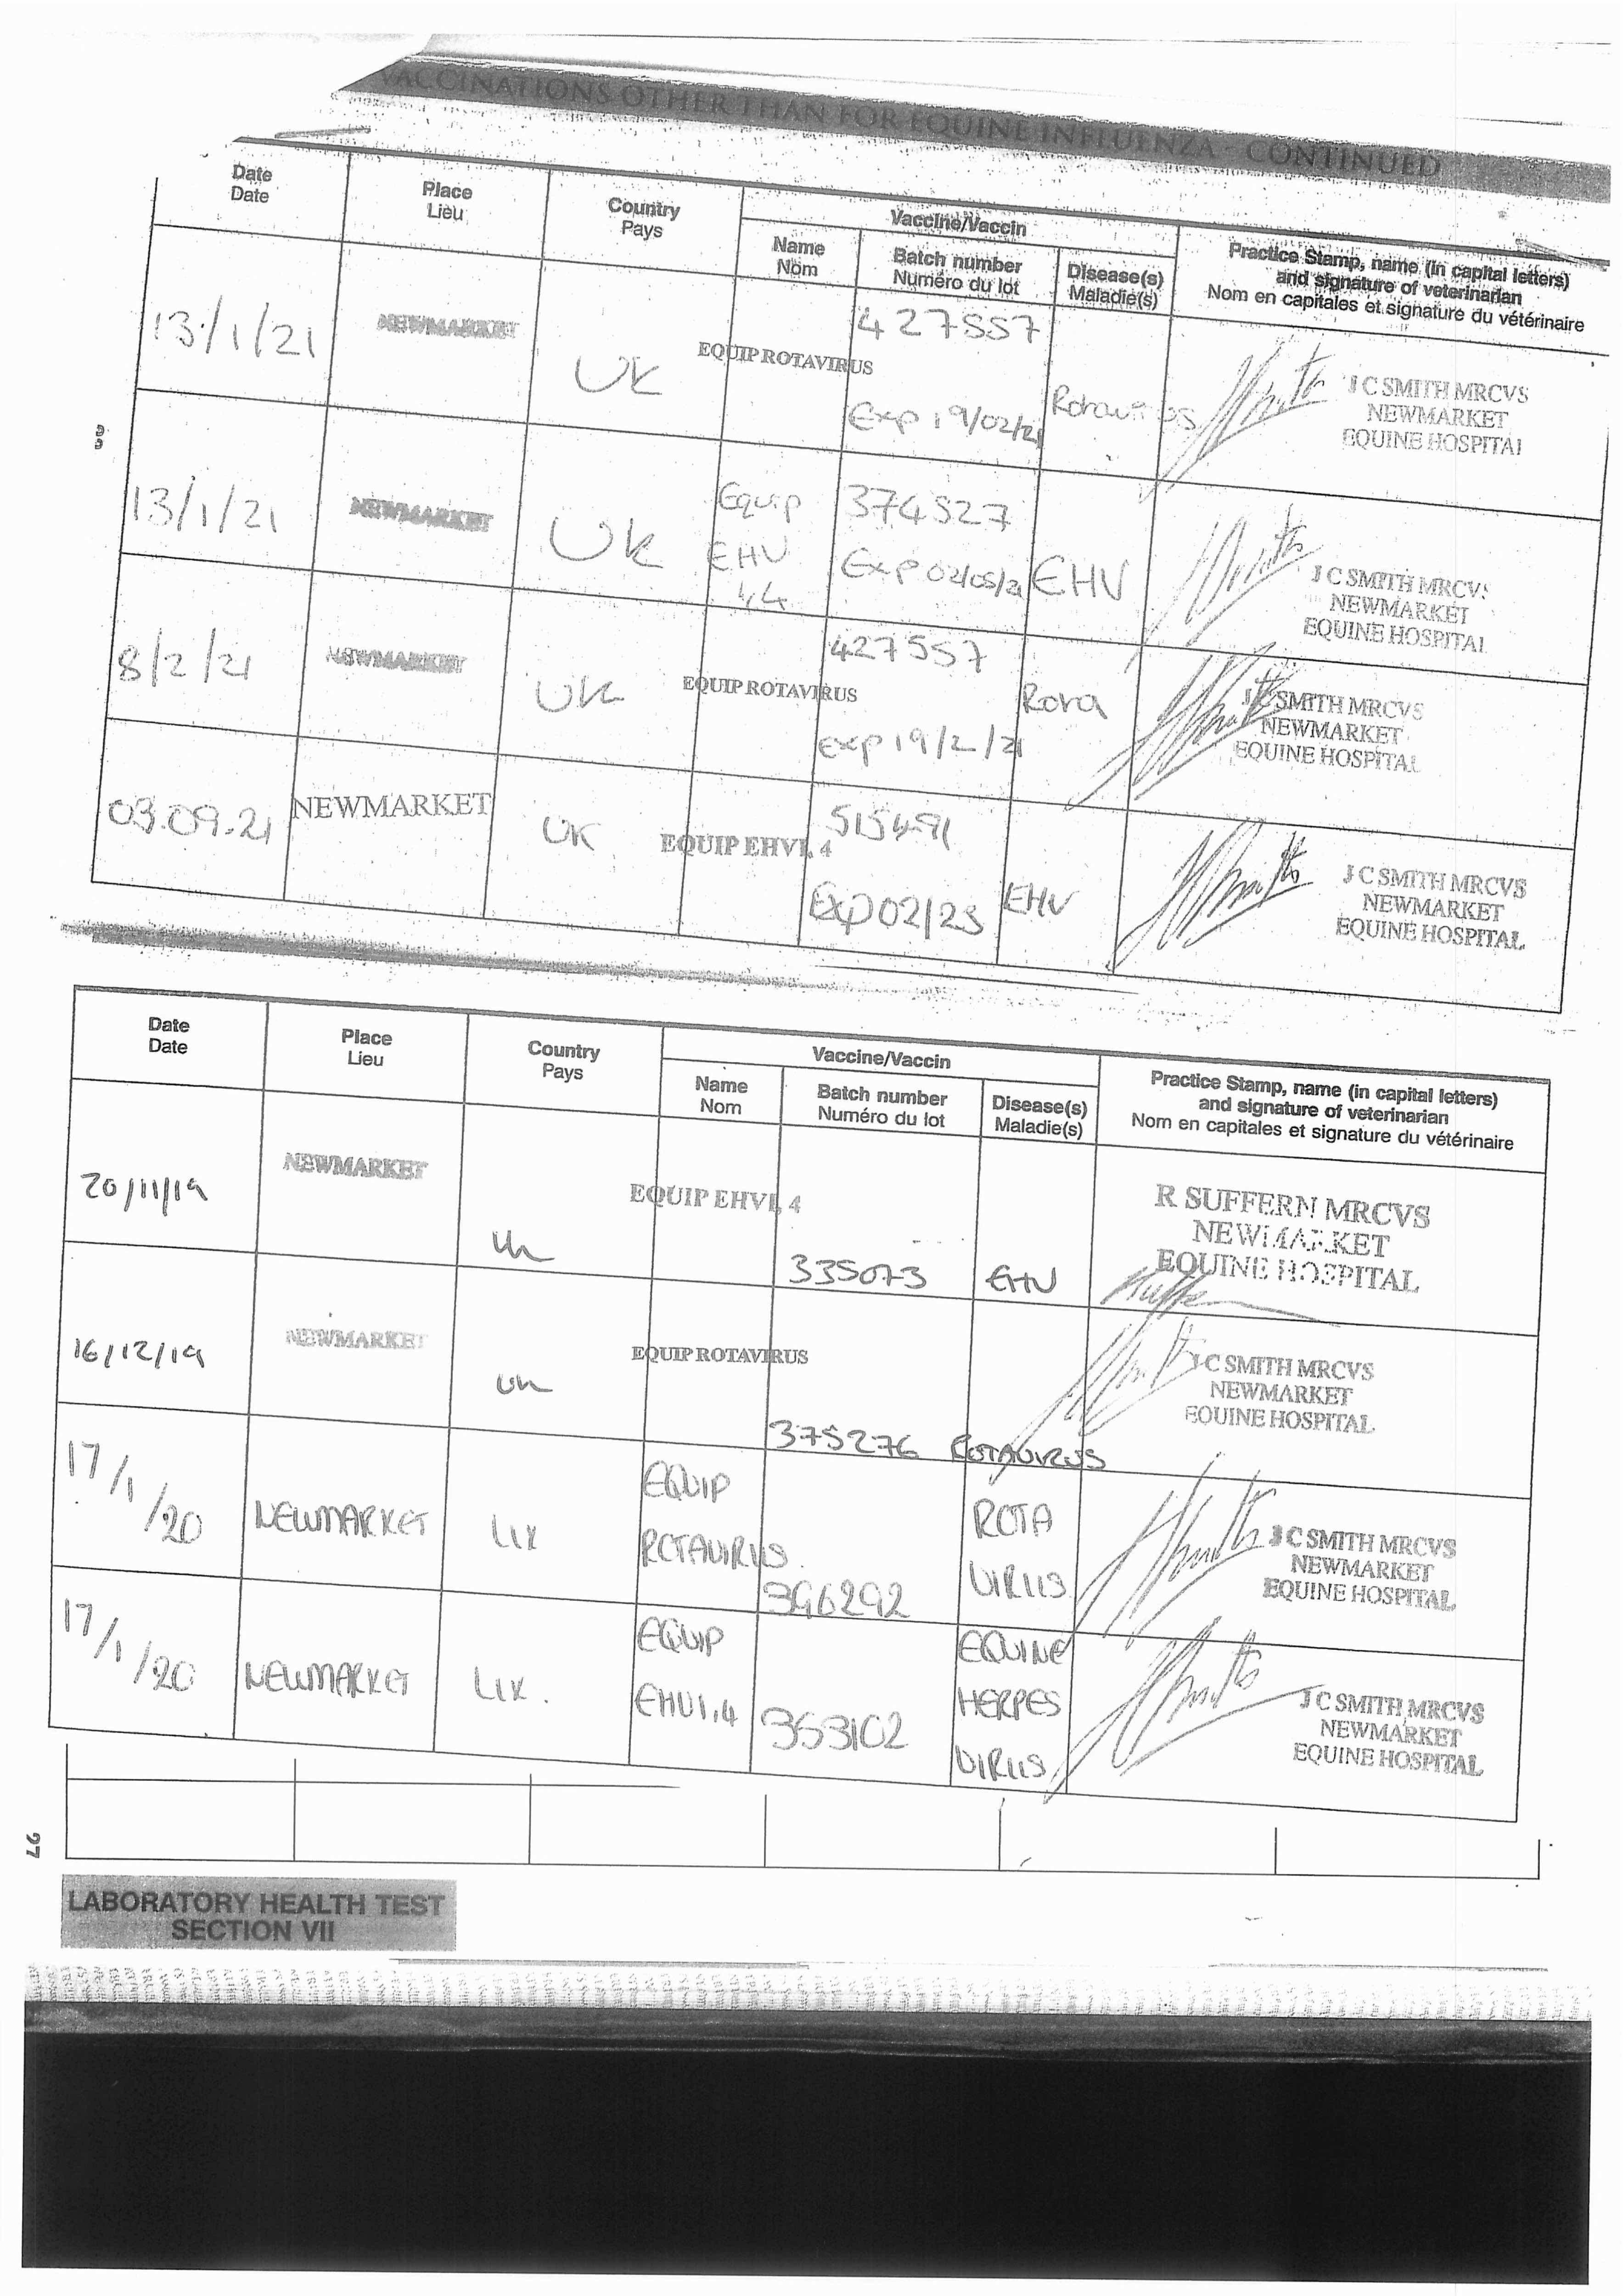 VACCINATIONS OTHER THAN FOR EQUINE INFLUENZA - CONTINUED
Date
Date
Place
Lieu
Country
Pays
Vaccine/Vaccin
Name
Nom
Batch number
Numéro du lot
Disease(s)
Maladie(s)
Practice Stamp, name (in capital letters)
and signature of veterinarian
Nom en capitales et signature du vétérinaire
13/1/21
NEWMARKET
UK
EQUIP ROTAVIRUS
427557
Exp 19/02/21
Rotavirus
J C SMITH MRCVS
NEWMARKET
EQUINE HOSPITAL
13/1/21
NEWMARKET
UK
Equip
EHV
1,4
374527
Exp 02/05/21
EHV
J C SMITH MRCVS
NEWMARKET
EQUINE HOSPITAL
8/2/21
NEWMARKET
UK
EQUIP ROTAVIRUS
427557
exp 19/2/21
Rota
J C SMITH MRCVS
NEWMARKET
EQUINE HOSPITAL
03.09.21
NEWMARKET
UK
EQUIP EHV1, 4
515491
Exp 02/23
EHV
J C SMITH MRCVS
NEWMARKET
EQUINE HOSPITAL
Date
Date
Place
Lieu
Country
Pays
Vaccine/Vaccin
Name
Nom
Batch number
Numéro du lot
Disease(s)
Maladie(s)
Practice Stamp, name (in capital letters)
and signature of veterinarian
Nom en capitales et signature du vétérinaire
20/11/19
NEWMARKET
UK
EQUIP EHV1, 4
335073
EHV
R SUFFERN MRCVS
NEWMARKET
EQUINE HOSPITAL
16/12/19
NEWMARKET
UK
EQUIP ROTAVIRUS
375276
ROTAVIRUS
J C SMITH MRCVS
NEWMARKET
EQUINE HOSPITAL
17/1/20
NEWMARKET
UK
EQUIP
ROTAVIRUS
396292
ROTA
VIRUS
J C SMITH MRCVS
NEWMARKET
EQUINE HOSPITAL
17/1/20
NEWMARKET
UK.
EQUIP
EHV1,4
353102
EQUINE
HERPES
VIRUS
J C SMITH MRCVS
NEWMARKET
EQUINE HOSPITAL
97
LABORATORY HEALTH TEST
SECTION VII